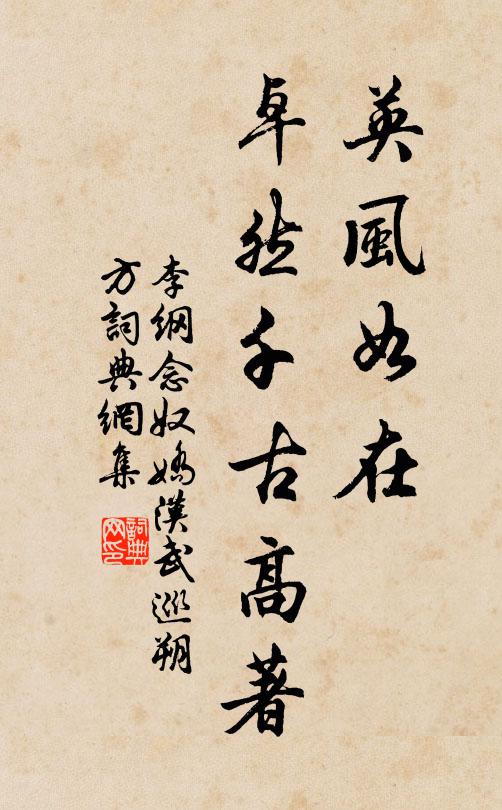 英風如在
卓然千古高著
李綱念奴嬌漢武巡朔
方詞典網集
詞典
网印